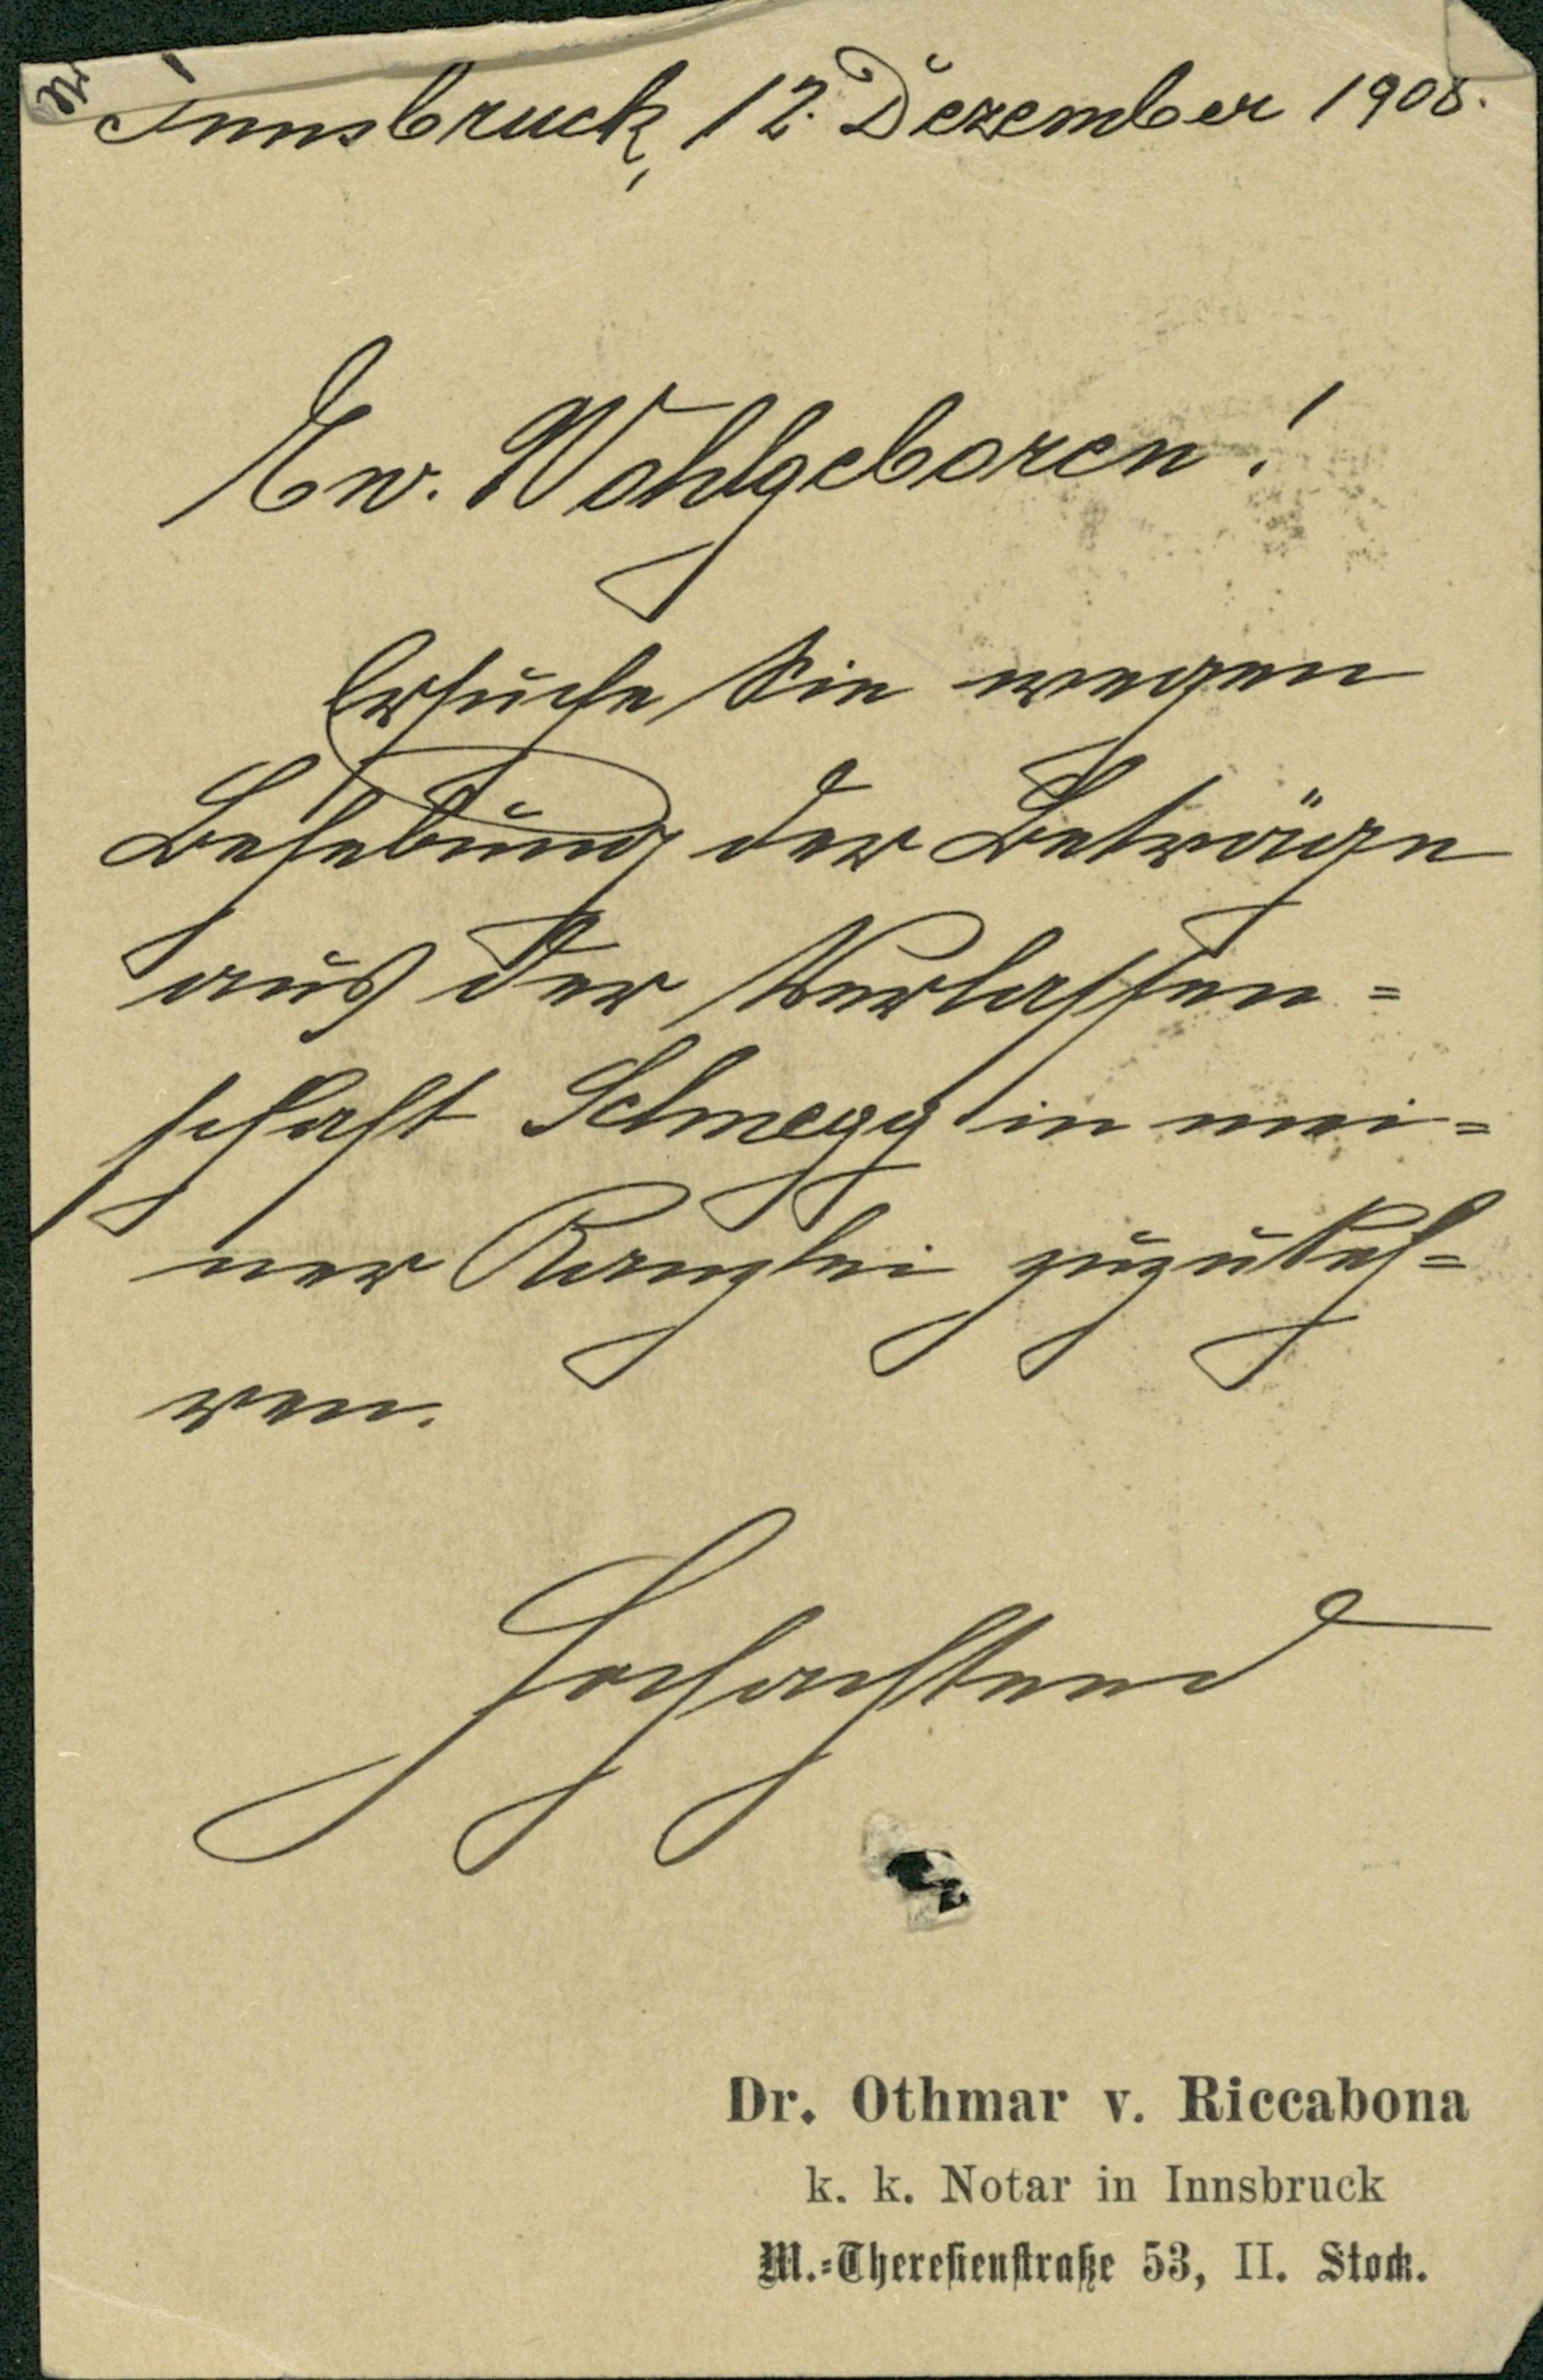 Innsbruck, 12. Dezember 1908.
Ew. Wohlgeboren!
Ersuche Sie wegen
Behebung der Beträge
aus der Verlassen=
schaft Schmegg in mei=
ner Kanzlei zuzukeh=
ren.
Hochachtend
Dr. Othmar v. Riccabona
k. k. Notar in Innsbruck
M.=Theresienstraße 53, II. Stock.